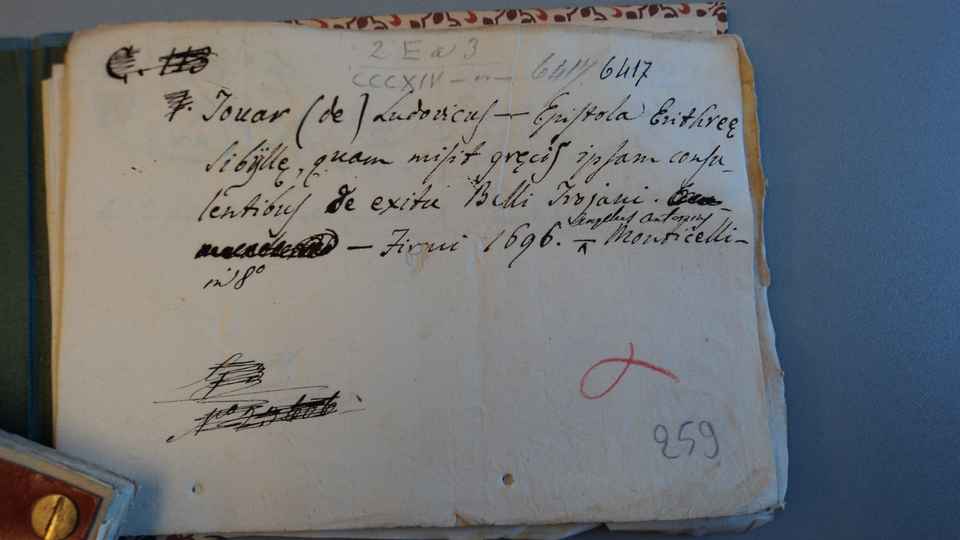 2 E a 3
CCCXIV — n — 6417 6417
Jouar (de) Ludovicus — Epistola Erithreę
Sibÿllę, quam misit gręcis ipsam consu-
lentibus de exitu Belli Trojani.
— Firmi 1696. — Angelus Antonius Monticelli —
in 8°
259